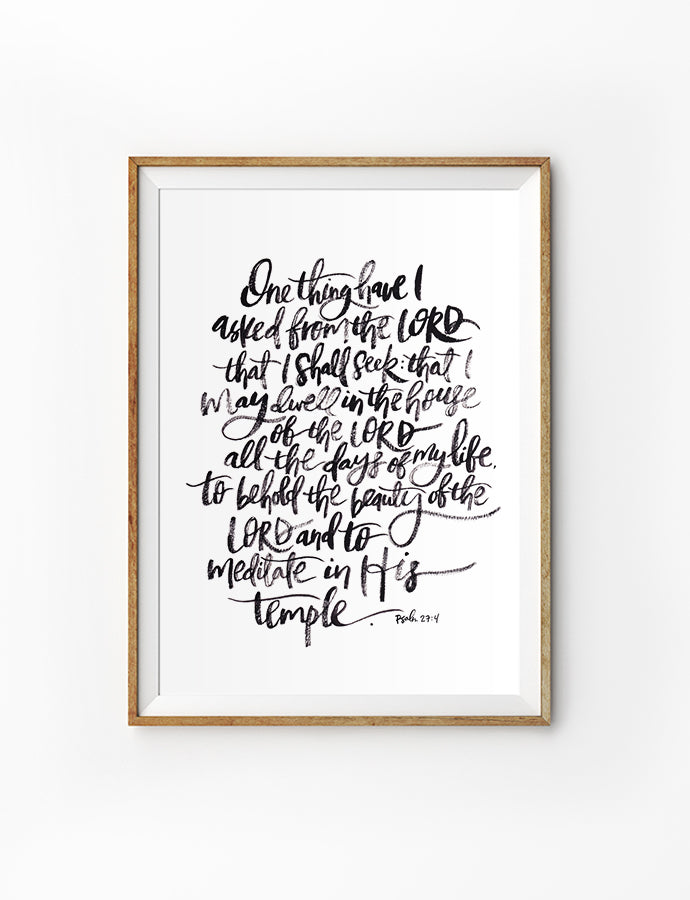 One thing have I
asked from the LORD
that I shall seek: that I
may dwell in the house
of the LORD
all the days of my life,
to behold the beauty of the
LORD and to
meditate in His
temple.
Psalm 27:4